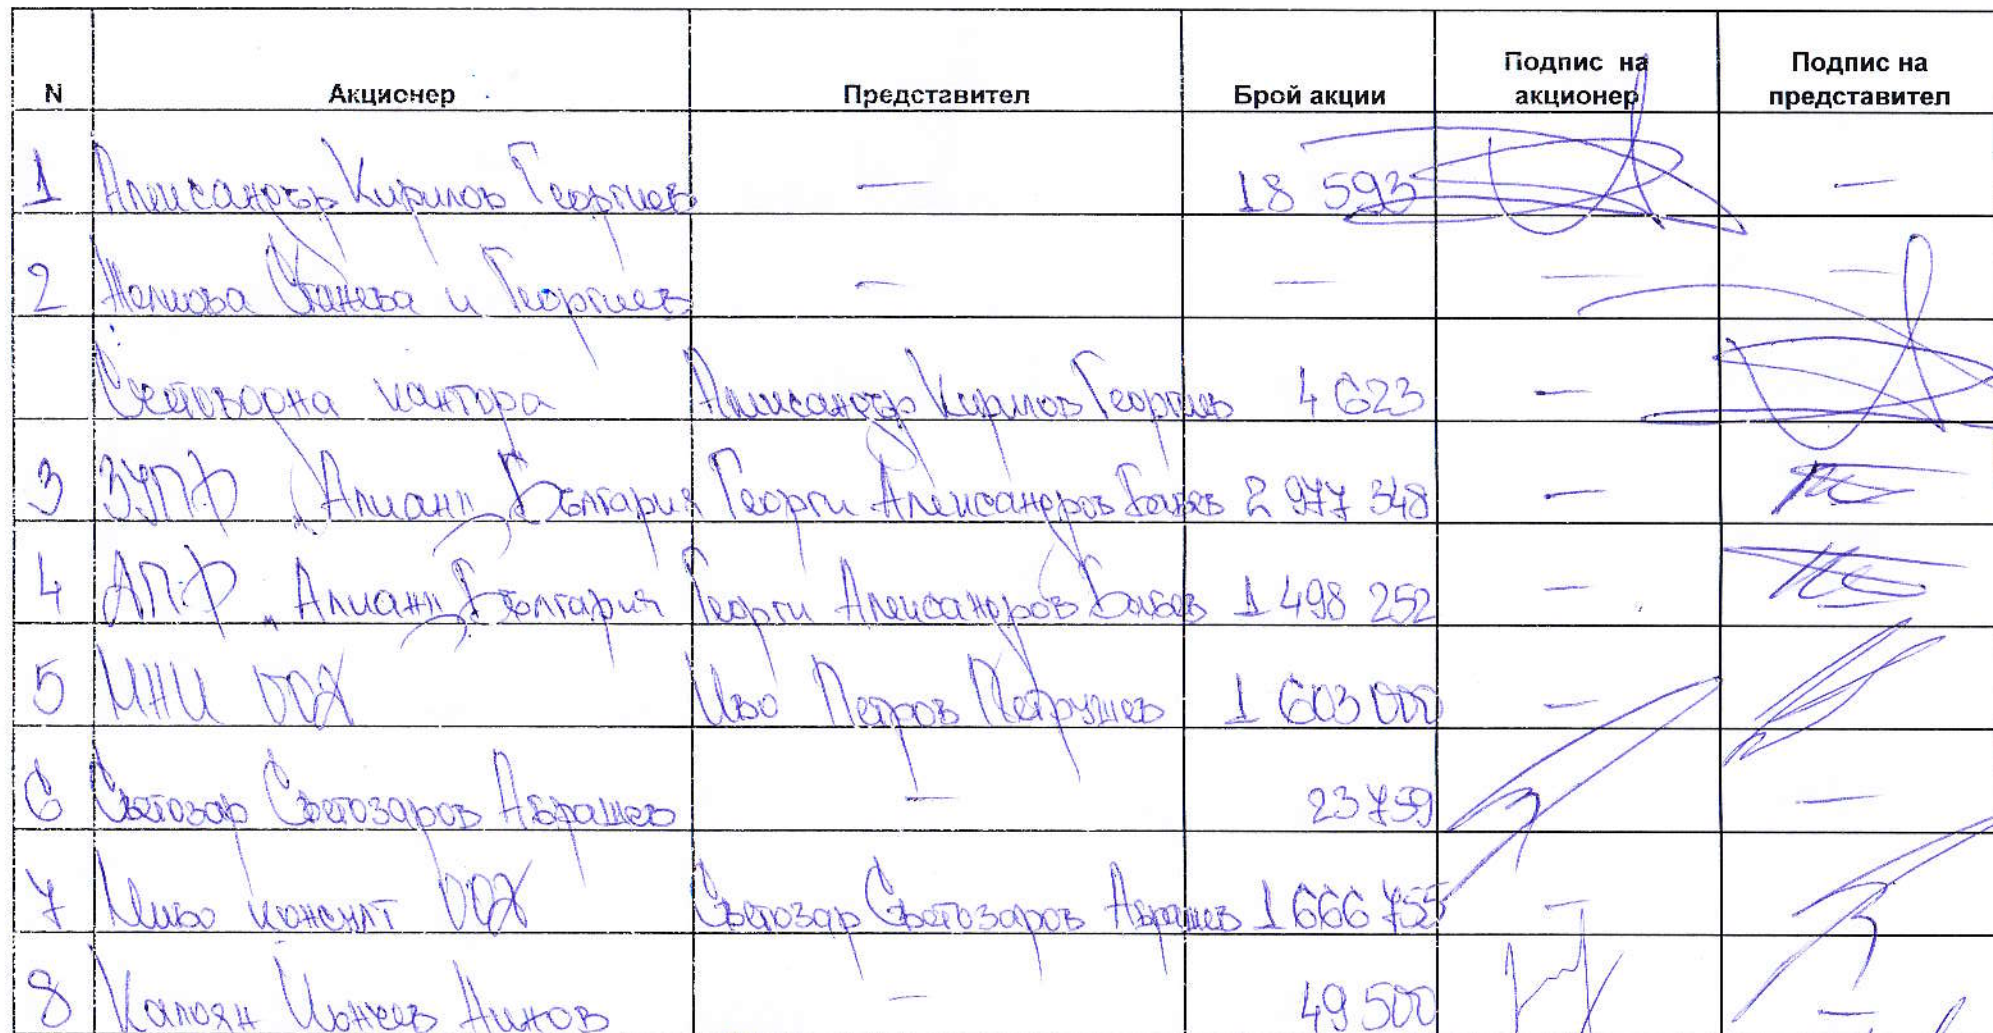 N Акционер Представител Брой акции Подпис на акционер Подпис на представител
1 Александър Кирилов Георгиев — 18 593 —
2 Желязкова Станева и Георгиев — — — —
Счетоводна кантора Александър Кирилов Георгиев 4 623 —
3 ЗУПФ „Алианц България Георги Александров 2 977 348 —
4 ДПФ „Алианц България Георги Александров 1 498 252 —
5 МНИ ООД Иво Петров Петрушев 1 603 000 —
6 Светозар Светозаров Абрашев — 23 759 —
7 консулт ООД Светозар Светозаров Абрашев 1 666 755 —
8 Калоян Йончев Нинов — 49 500 —